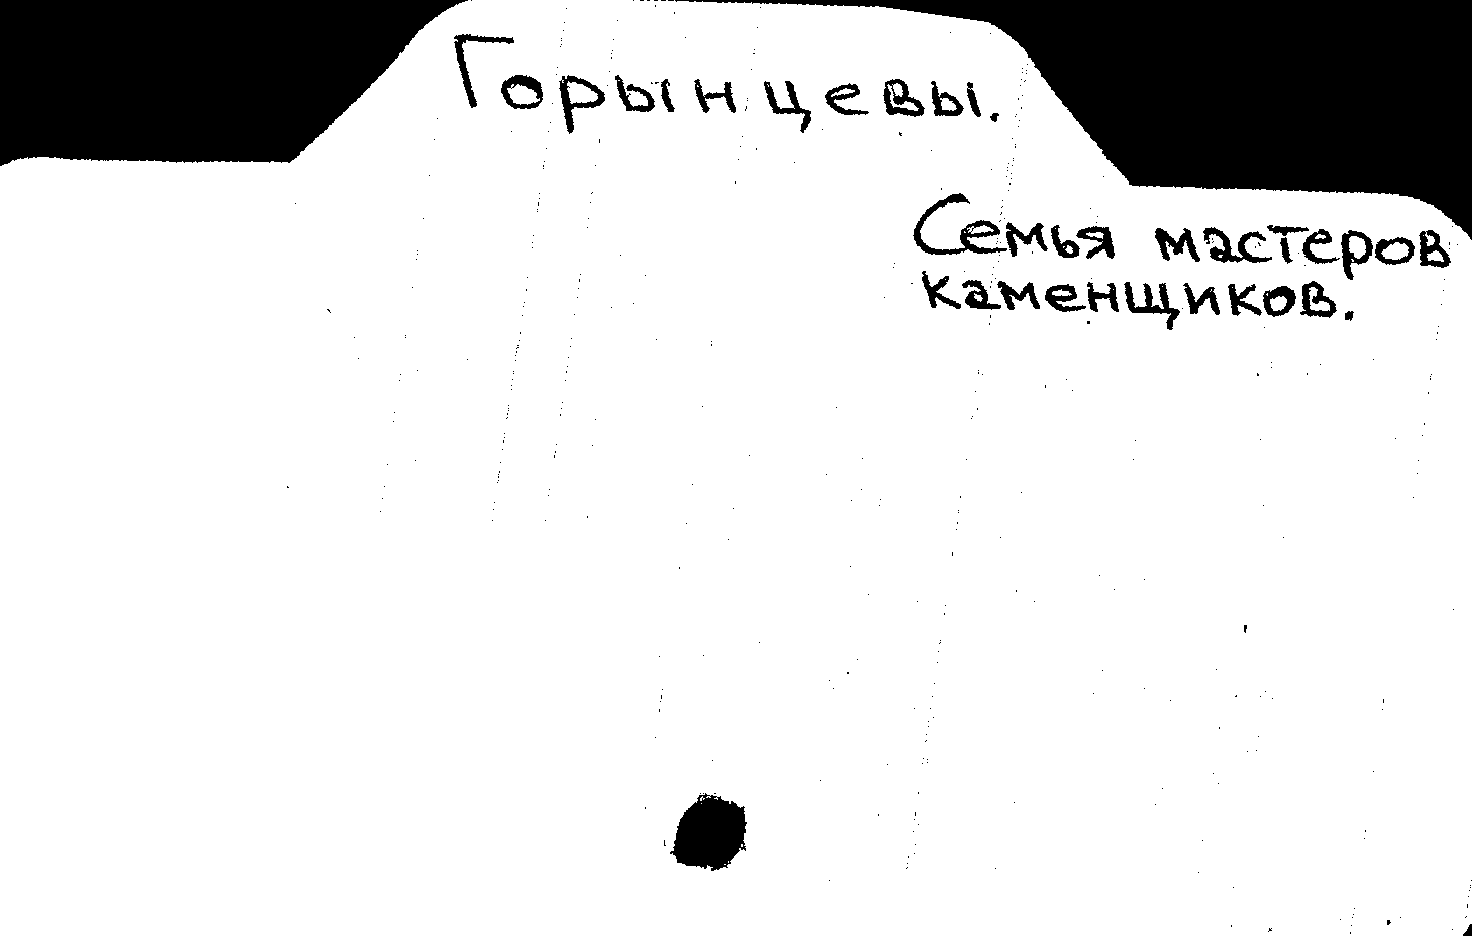 Горынцевы.
Семья мастеров
каменщиков.